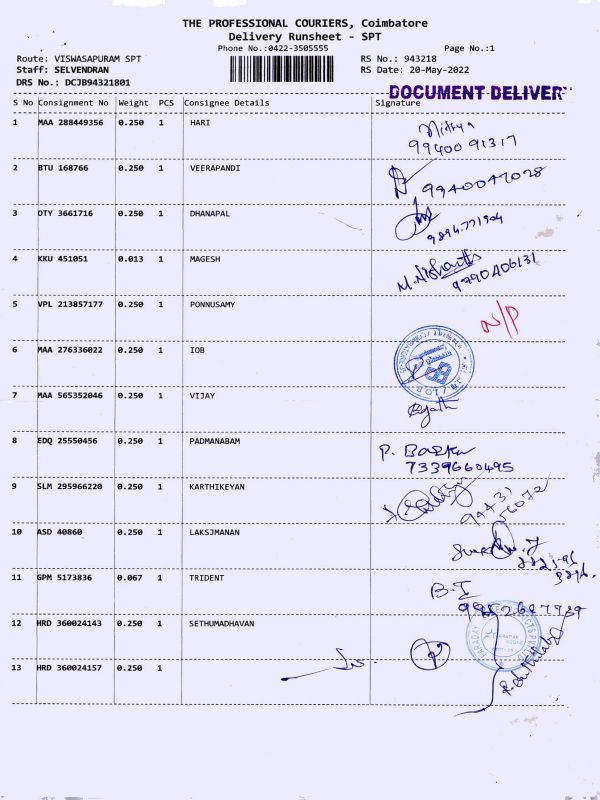 THE PROFESSIONAL COURIERS, Coimbatore
Delivery Runsheet - SPT
Phone No.:0422-3505555
Page No.:1
Route: VISWASAPURAM SPT
RS No.: 943218
Staff: SELVENDRAN
RS Date: 20-May-2022
DRS No.: DCJB94321801
DOCUMENT DELIVER
S No Consignment No Weight PCS Consignee Details Signature
1 MAA 288449356 0.250 1 HARI
Nithya
99400 91317
2 BTU 168766 0.250 1 VEERAPANDI
9940047028
3 OTY 3661716 0.250 1 DHANAPAL
9894771904
4 KKU 451051 0.013 1 MAGESH
9790406131
5 VPL 213857177 0.250 1 PONNUSAMY
N/P
6 MAA 276336022 0.250 1 IOB
7 MAA 565352046 0.250 1 VIJAY
8 EDQ 25550456 0.250 1 PADMANABAM
P. Baskar
7339660495
9 SLM 295966220 0.250 1 KARTHIKEYAN
10 ASD 40860 0.250 1 LAKSJMANAN
11 GPM 5173836 0.067 1 TRIDENT
B.I
12 HRD 360024143 0.250 1 SETHUMADHAVAN
13 HRD 360024157 0.250 1